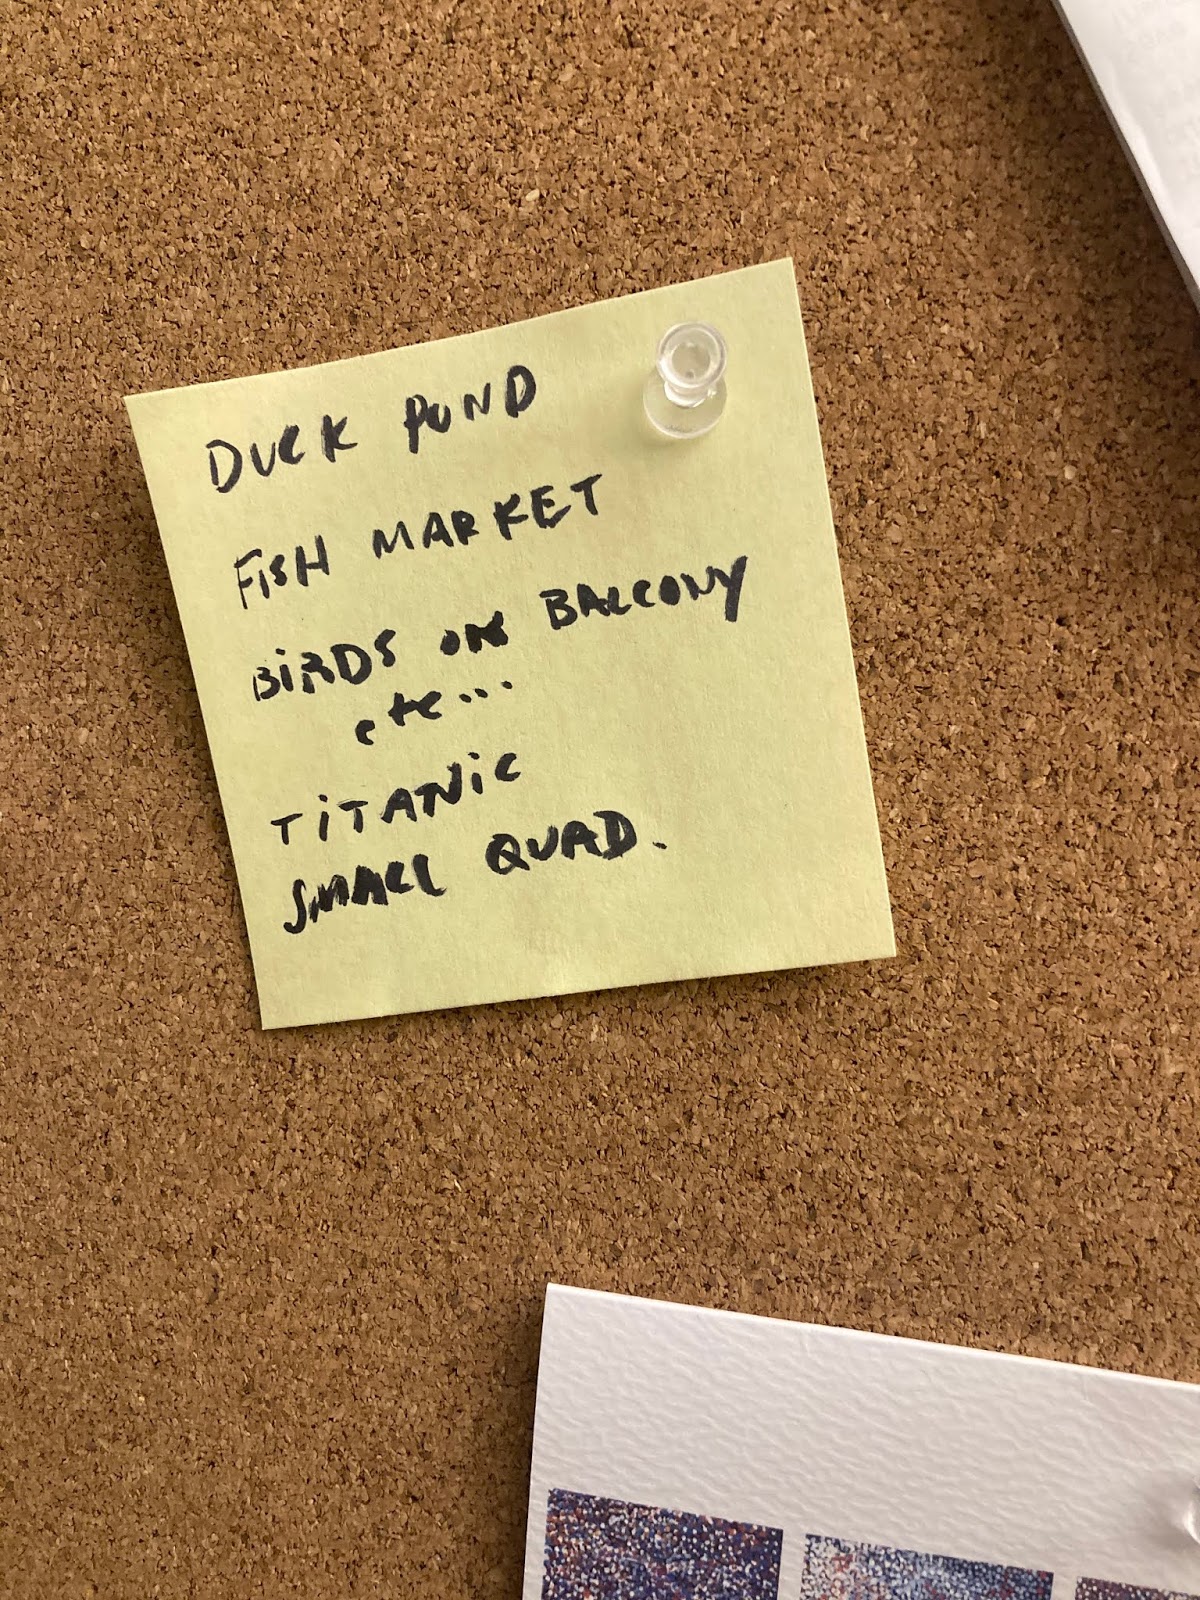 DUCK POND
FISH MARKET
BIRDS ON BALCONY
etc...
TITANIC
SMALL QUAD.